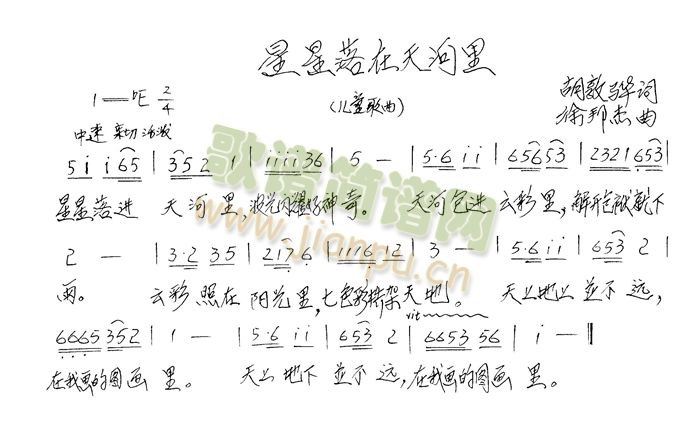 星星落在天河里
1=♭E 2/4
(儿童歌曲)
胡敦骅词
徐邦杰曲
中速 亲切 活泼
5 i i 6 5 | 3 5 2 1 | i i i i 3 6 | 5 – | 5·6 i i | 6 5 6 5 3 | 2 3 2 1 6 5 3 |
星星落进 天河里,波光闪耀好神奇。 天河包进 云彩里,解开包袱就下
2 – | 3·2 3 5 | 2 1 7 6 | 1 1 1 6 1 2 | 3 – | 5·6 i i | 6 5 3 2 |
雨。 云彩照在 阳光里,七色彩桥架天地。 天上地上 并不远,
vit
6 6 6 5 3 5 2 | 1 – | 5·6 i i | 6 5 3 2 | 6 6 5 3 5 6 | i – ‖
在我画的图画里。 天上地下 并不远,在我画的图画里。
歌谱简谱网
www.jianpu.cn